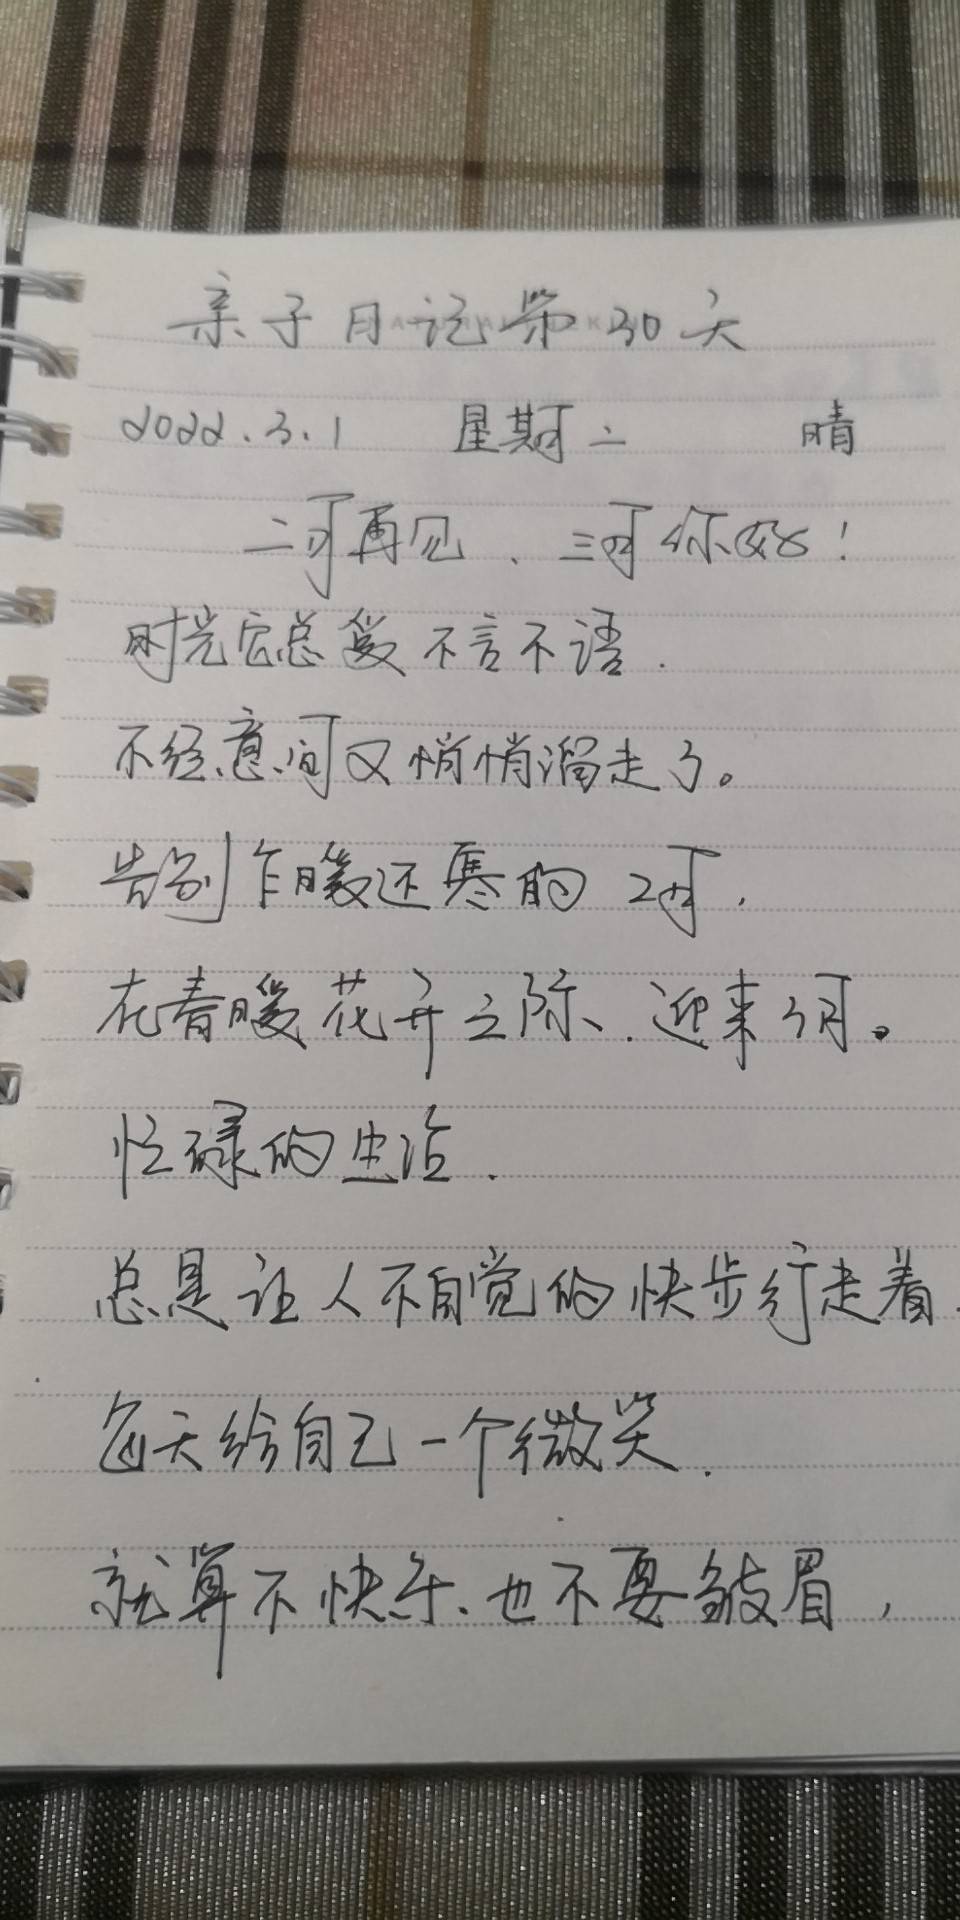 亲子日记第30天
2022.3.1 星期二 晴
二月再见，三月你好！
时光它总爱不言不语，
不经意间又悄悄溜走了。
告别乍暖还寒的2月，
在春暖花开之际，迎来3月。
忙碌的生活，
总是让人不自觉的快步行走着，
每天给自己一个微笑，
就算不快乐、也不要皱眉，